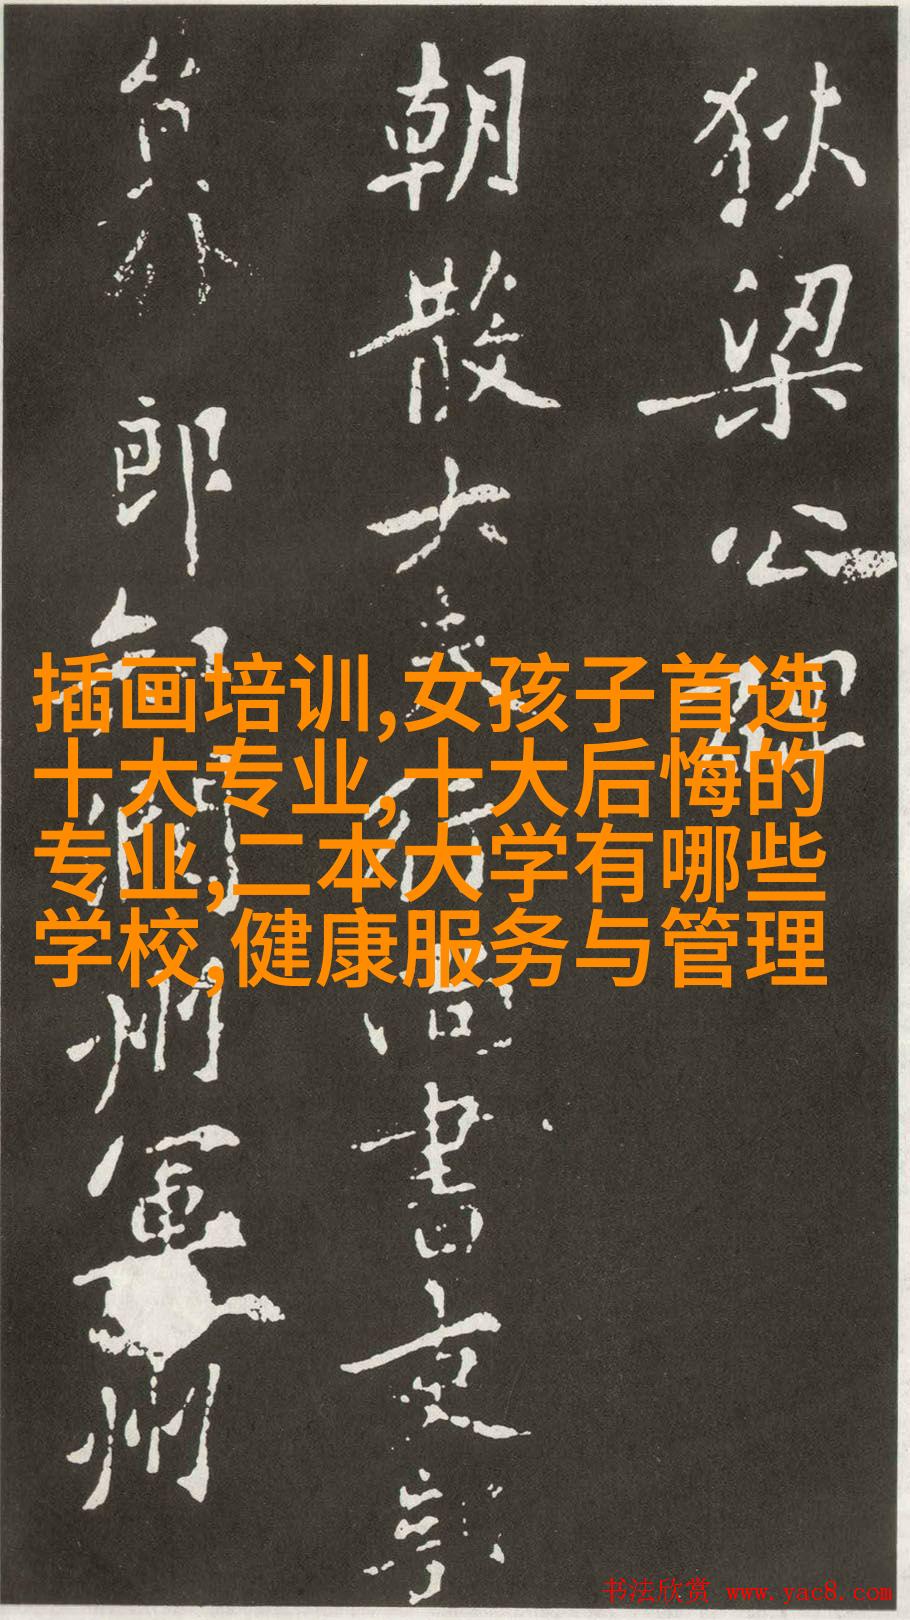 狄梁公碑
朝散大夫行尚書吏部
員外郎知潤州軍州
插画培训,女孩子首选
十大专业,十大后悔的
专业,二本大学有哪些
学校,健康服务与管理
书法欣赏 www.yac8.com